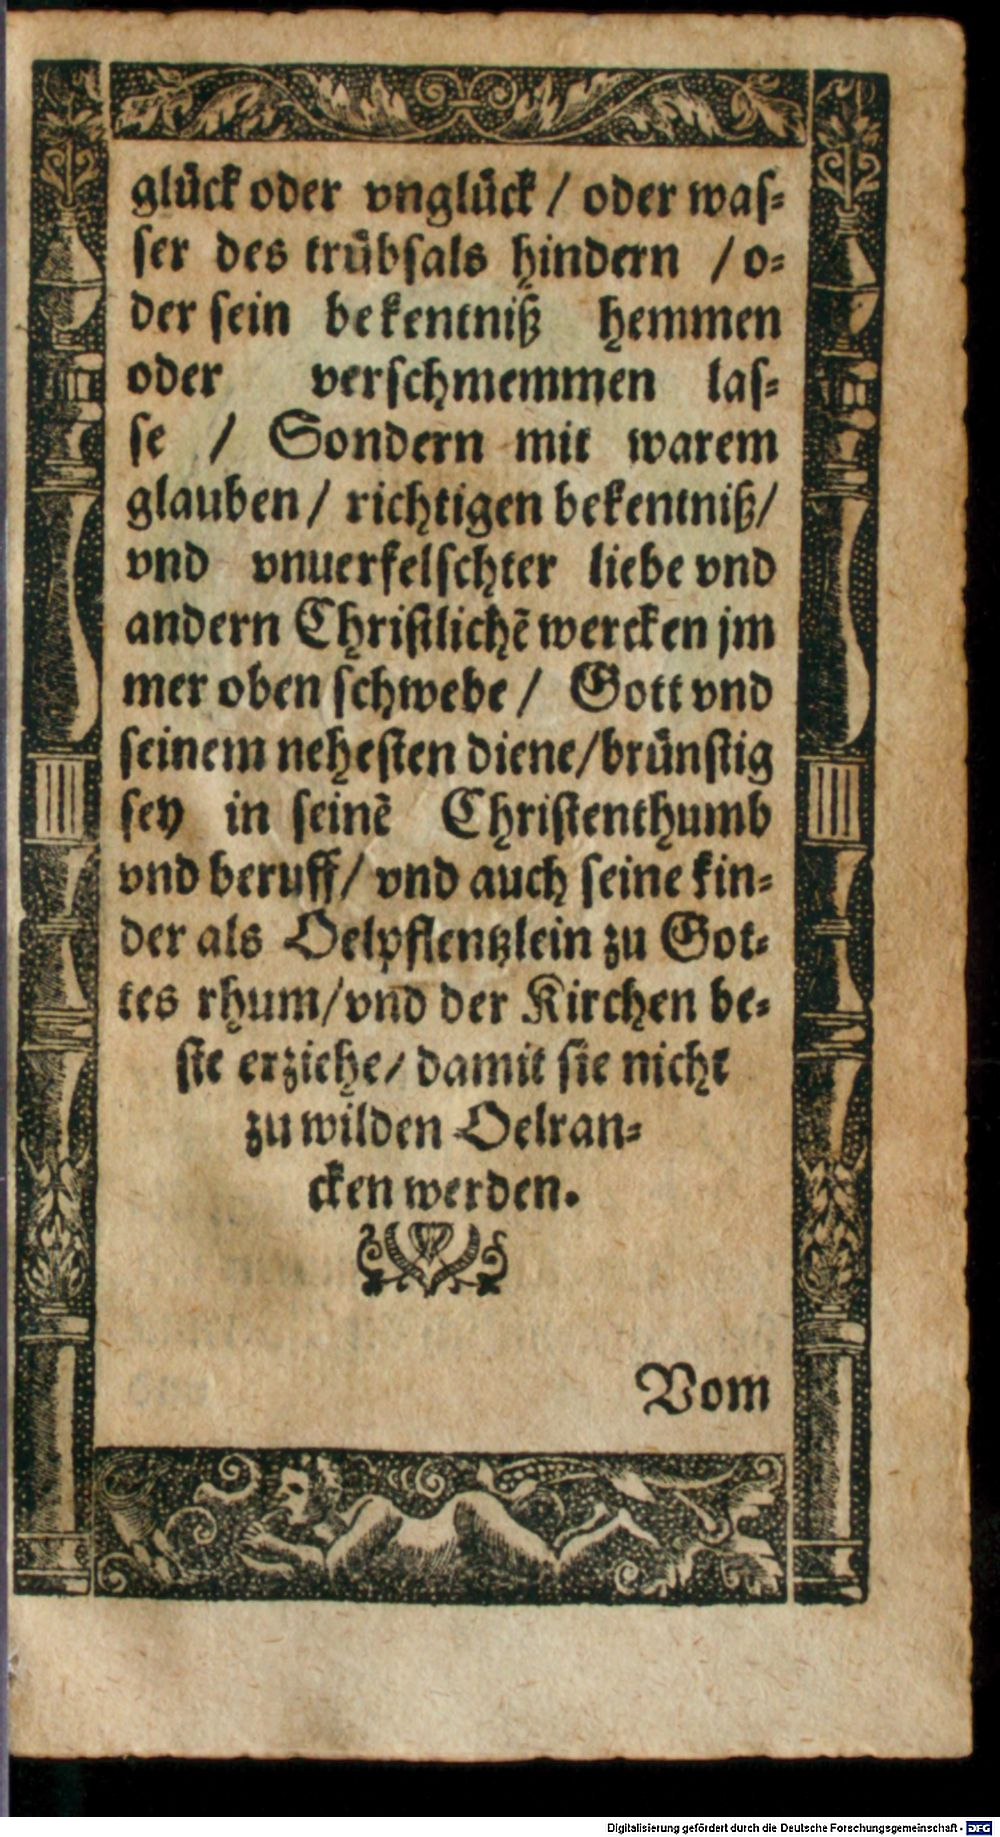 glück oder vnglück / oder was-
ser des trübsals hindern / o-
der sein bekentniß hemmen
oder verschmemmen las-
se / Sondern mit warem
glauben / richtigen bekentniß /
vnd vnuerfelschter liebe vnd
andern Christlichẽ wercken jm
mer oben schwebe / Gott vnd
seinem nehesten diene / brünstig
sey in seinẽ Christenthumb
vnd beruff / vnd auch seine kin-
der als Oelpflentzlein zu Got-
tes rhum / vnd der Kirchen be-
ste erziehe / damit sie nicht
zu wilden Oelran-
cken werden.
Vom
Digitalisierung gefördert durch die Deutsche Forschungsgemeinschaft - DFG